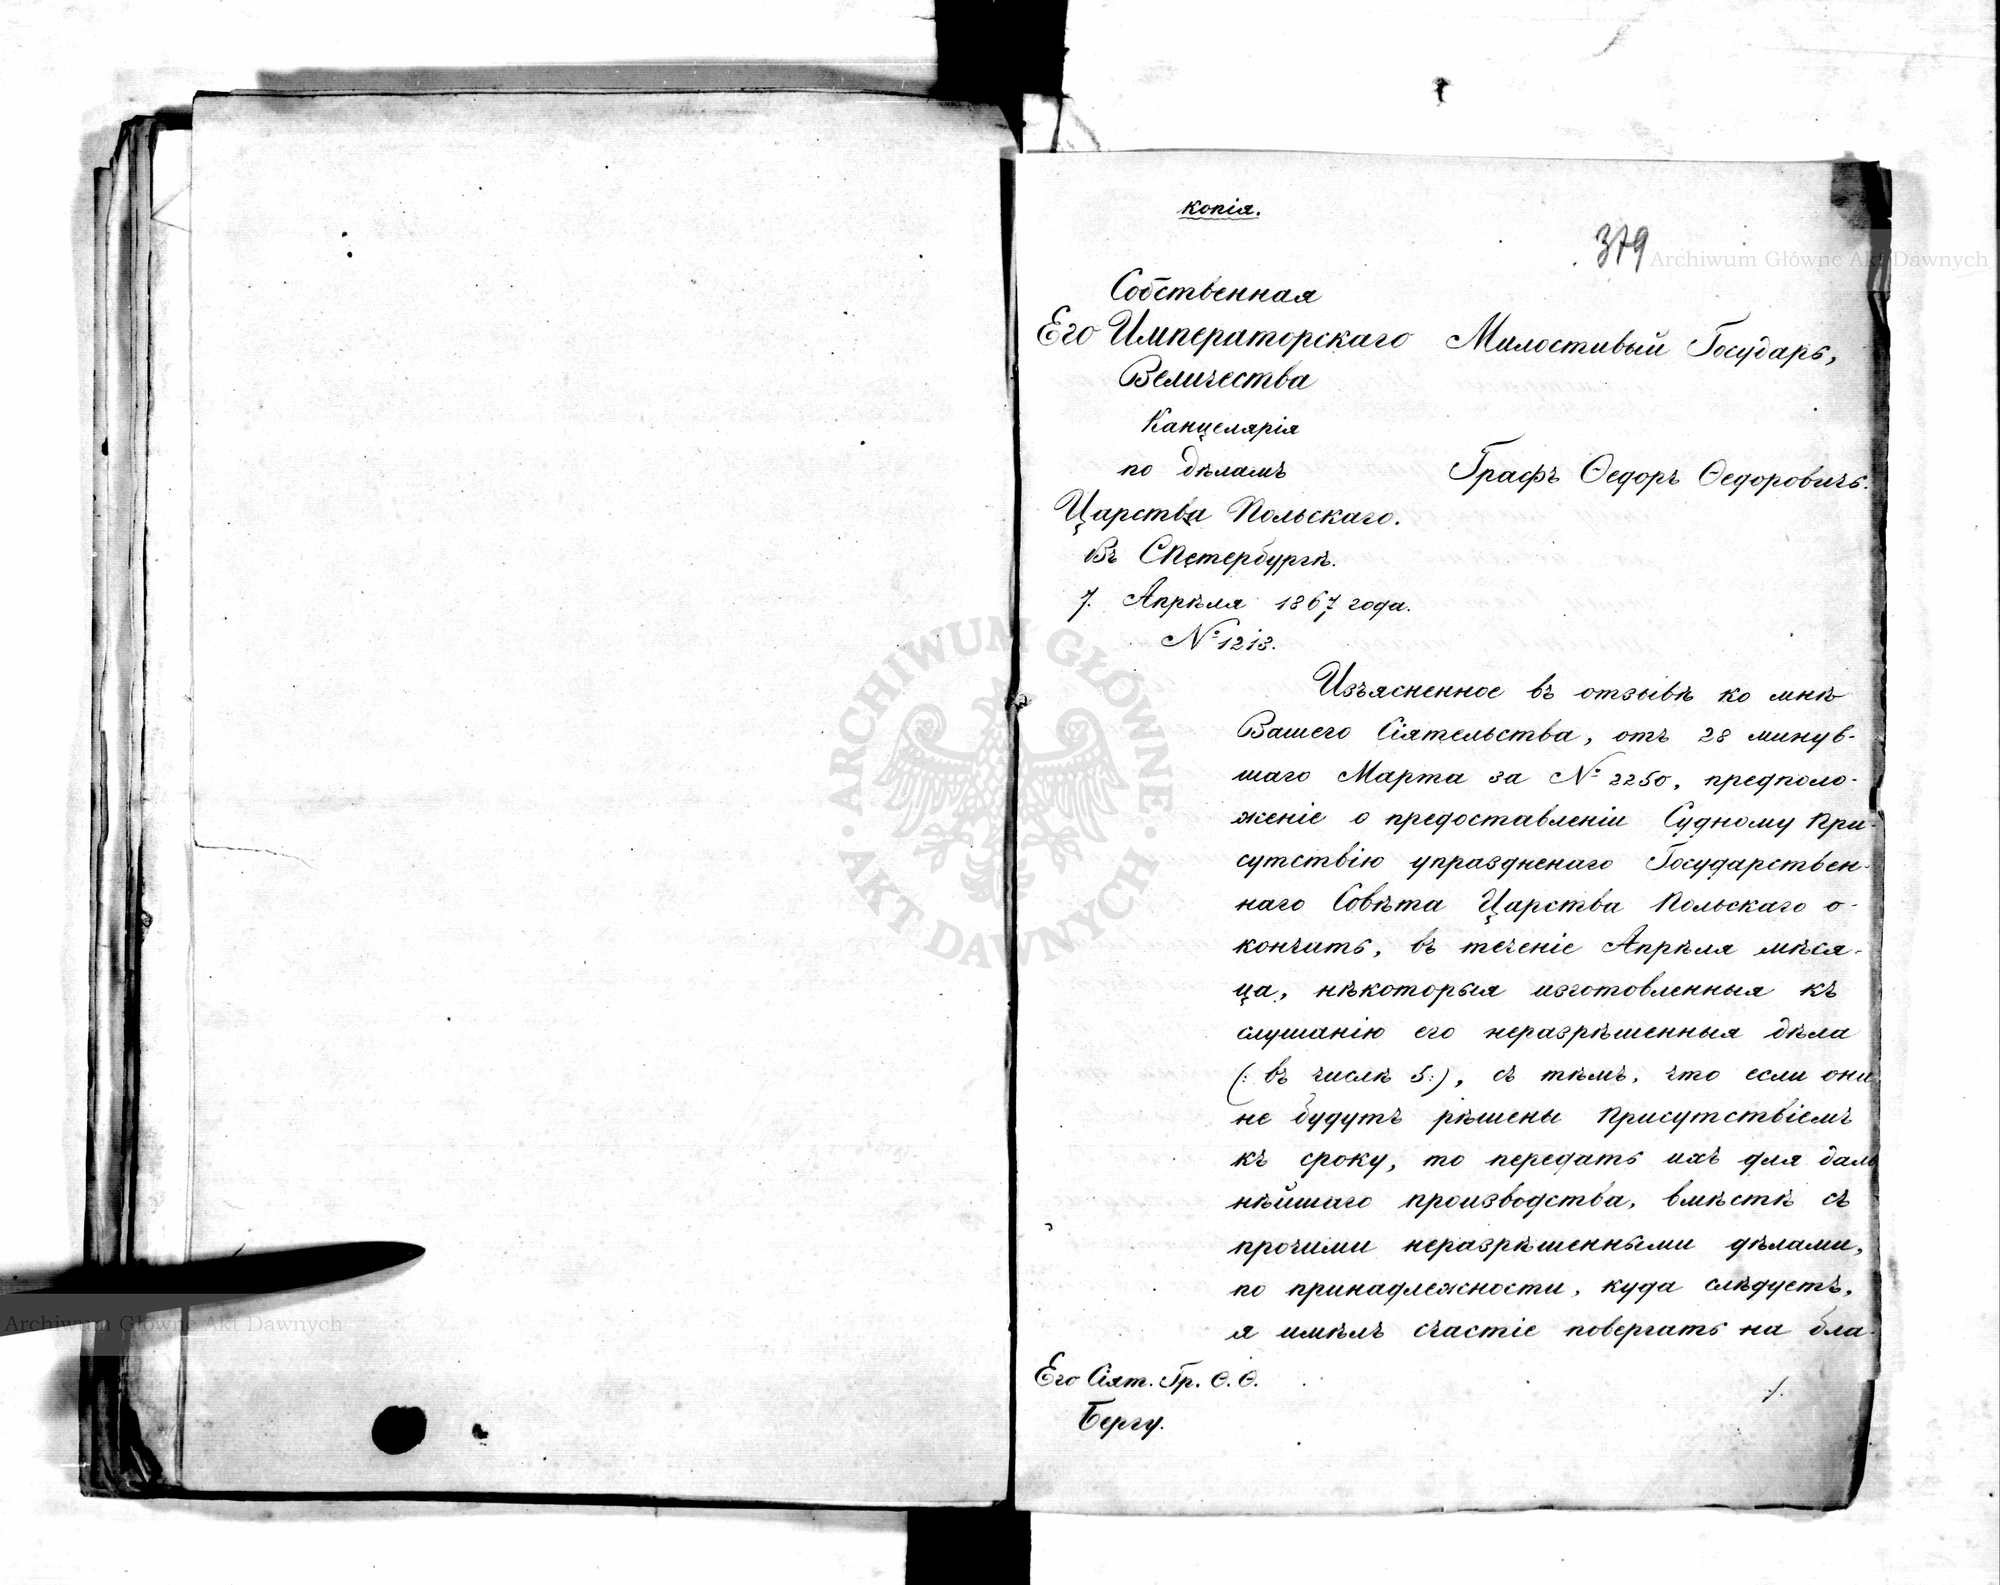 копія.
379
Собственная
Его Императорскаго
Величества
Канцелярія
по дѣламъ
Царства Польскаго.
Въ СПетербургѣ.
7. Апрѣля 1867 года.
№ 1213.
Милостивый Государь,
Графъ Ѳедоръ Ѳедоровичъ.
Изъясненное въ отзывѣ ко мнѣ
Вашего Сіятельства, отъ 28 минув-
шаго Марта за № 2250, предполо-
женіе о предоставленіи Судному При-
сутствію упраздненаго Государствен-
наго Совѣта Царства Польскаго о-
кончить, въ теченіе Апрѣля мѣся-
ца, нѣкоторыя изготовленныя къ
слушанію его неразрѣшенныя дѣла
(: въ числѣ 5:), съ тѣмъ, что если они
не будутъ рѣшены Присутствіемъ
къ сроку, то передать ихъ для даль
нѣйшаго производства, вмѣстѣ съ
прочими неразрѣшенными дѣлами,
по принадлежности, куда слѣдуетъ,
я имѣлъ счастіе повергать на бла-
Его Сіят. Гр. Ѳ. Ѳ.
Бергу.
Archiwum Główne Akt Dawnych
ARCHIWUM GŁÓWNE
AKT DAWNYCH
Archiwum Główne Akt Dawnych